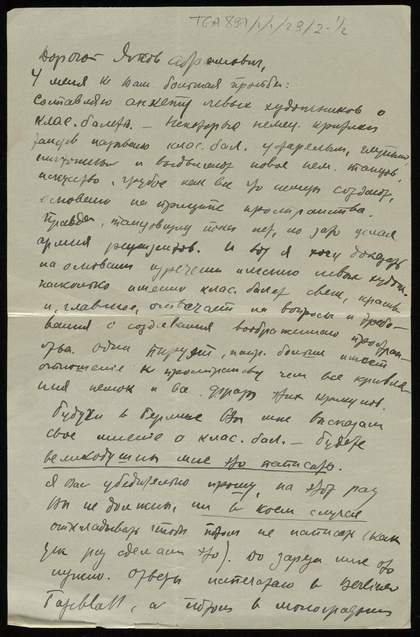 TGA 837/1/1/23/2-1/2
Дорогой Яков Абрамович,
У меня к Вам большая просьба:
составляю анкету левых художников о
клас. балете. – Некоторые немец. критики
танцев называют клас. бал. устарелым,
и возвышают новое нем. танцов.
искусство, грубое как все что немцы создают,
основано на принципе пространства.
Правда, танцовщиц таких нет, но зато целая
армия рецензентов. И вот я хочу доказать
на основании изречений именно левых худож.
насколько именно клас. балет свеж, красив
и, главное, отвечает на вопросы и требо-
вания с создавания воображаемого простран-
ства. Один пируэт, напр. больше имеет
отношение к пространству чем все кривля-
ния немок и все фразы этих критиков.
Будучи в Берлине Вы мне высказали
свое мнение о клас. бал. – будьте
великодушны мне это написать.
Я Вас убедительно прошу, на этот раз
Вы не должны, ни в коем случае
откладывать чтобы потом не написать (как
уж раз сделали это). До зарезу мне это
нужно. Ответы напечатаю в Berliner
Tageblatt, а потом в монографии